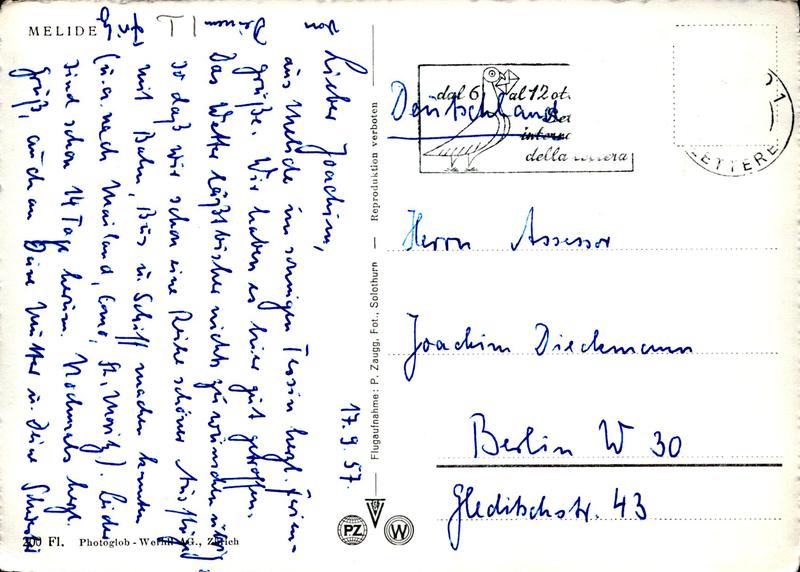 MELIDE
17.9.57.
Lieber Joachim,
aus Melide im sonnigen Tessin herzl. Ferien-
grüße. Wir haben es hier gut getroffen.
Das Wetter läßt bisher nichts zu wünschen übrig,
so daß wir schon eine Reihe schöner Ausflüge
mit Bahn, Bus u. Schiff machen konnten
(u.a. nach Mailand, Como, St. Moritz). Leider
sind schon 14 Tage herum. Nochmals herzl.
Grüße, auch an Deine Mutter u. Deine Schwester
von
Deinem
200 Fl. Photoglob-Wehrli AG., Zürich
Flugaufnahme: P. Zaugg, Fot., Solothurn — Reproduktion verboten
PZ
W
dal 6 al 12 ott.
interna
della lettera
LETTERE
Deutschland
Herrn Assessor
Joachim Dieckmann
Berlin W 30
Gleditschstr. 43